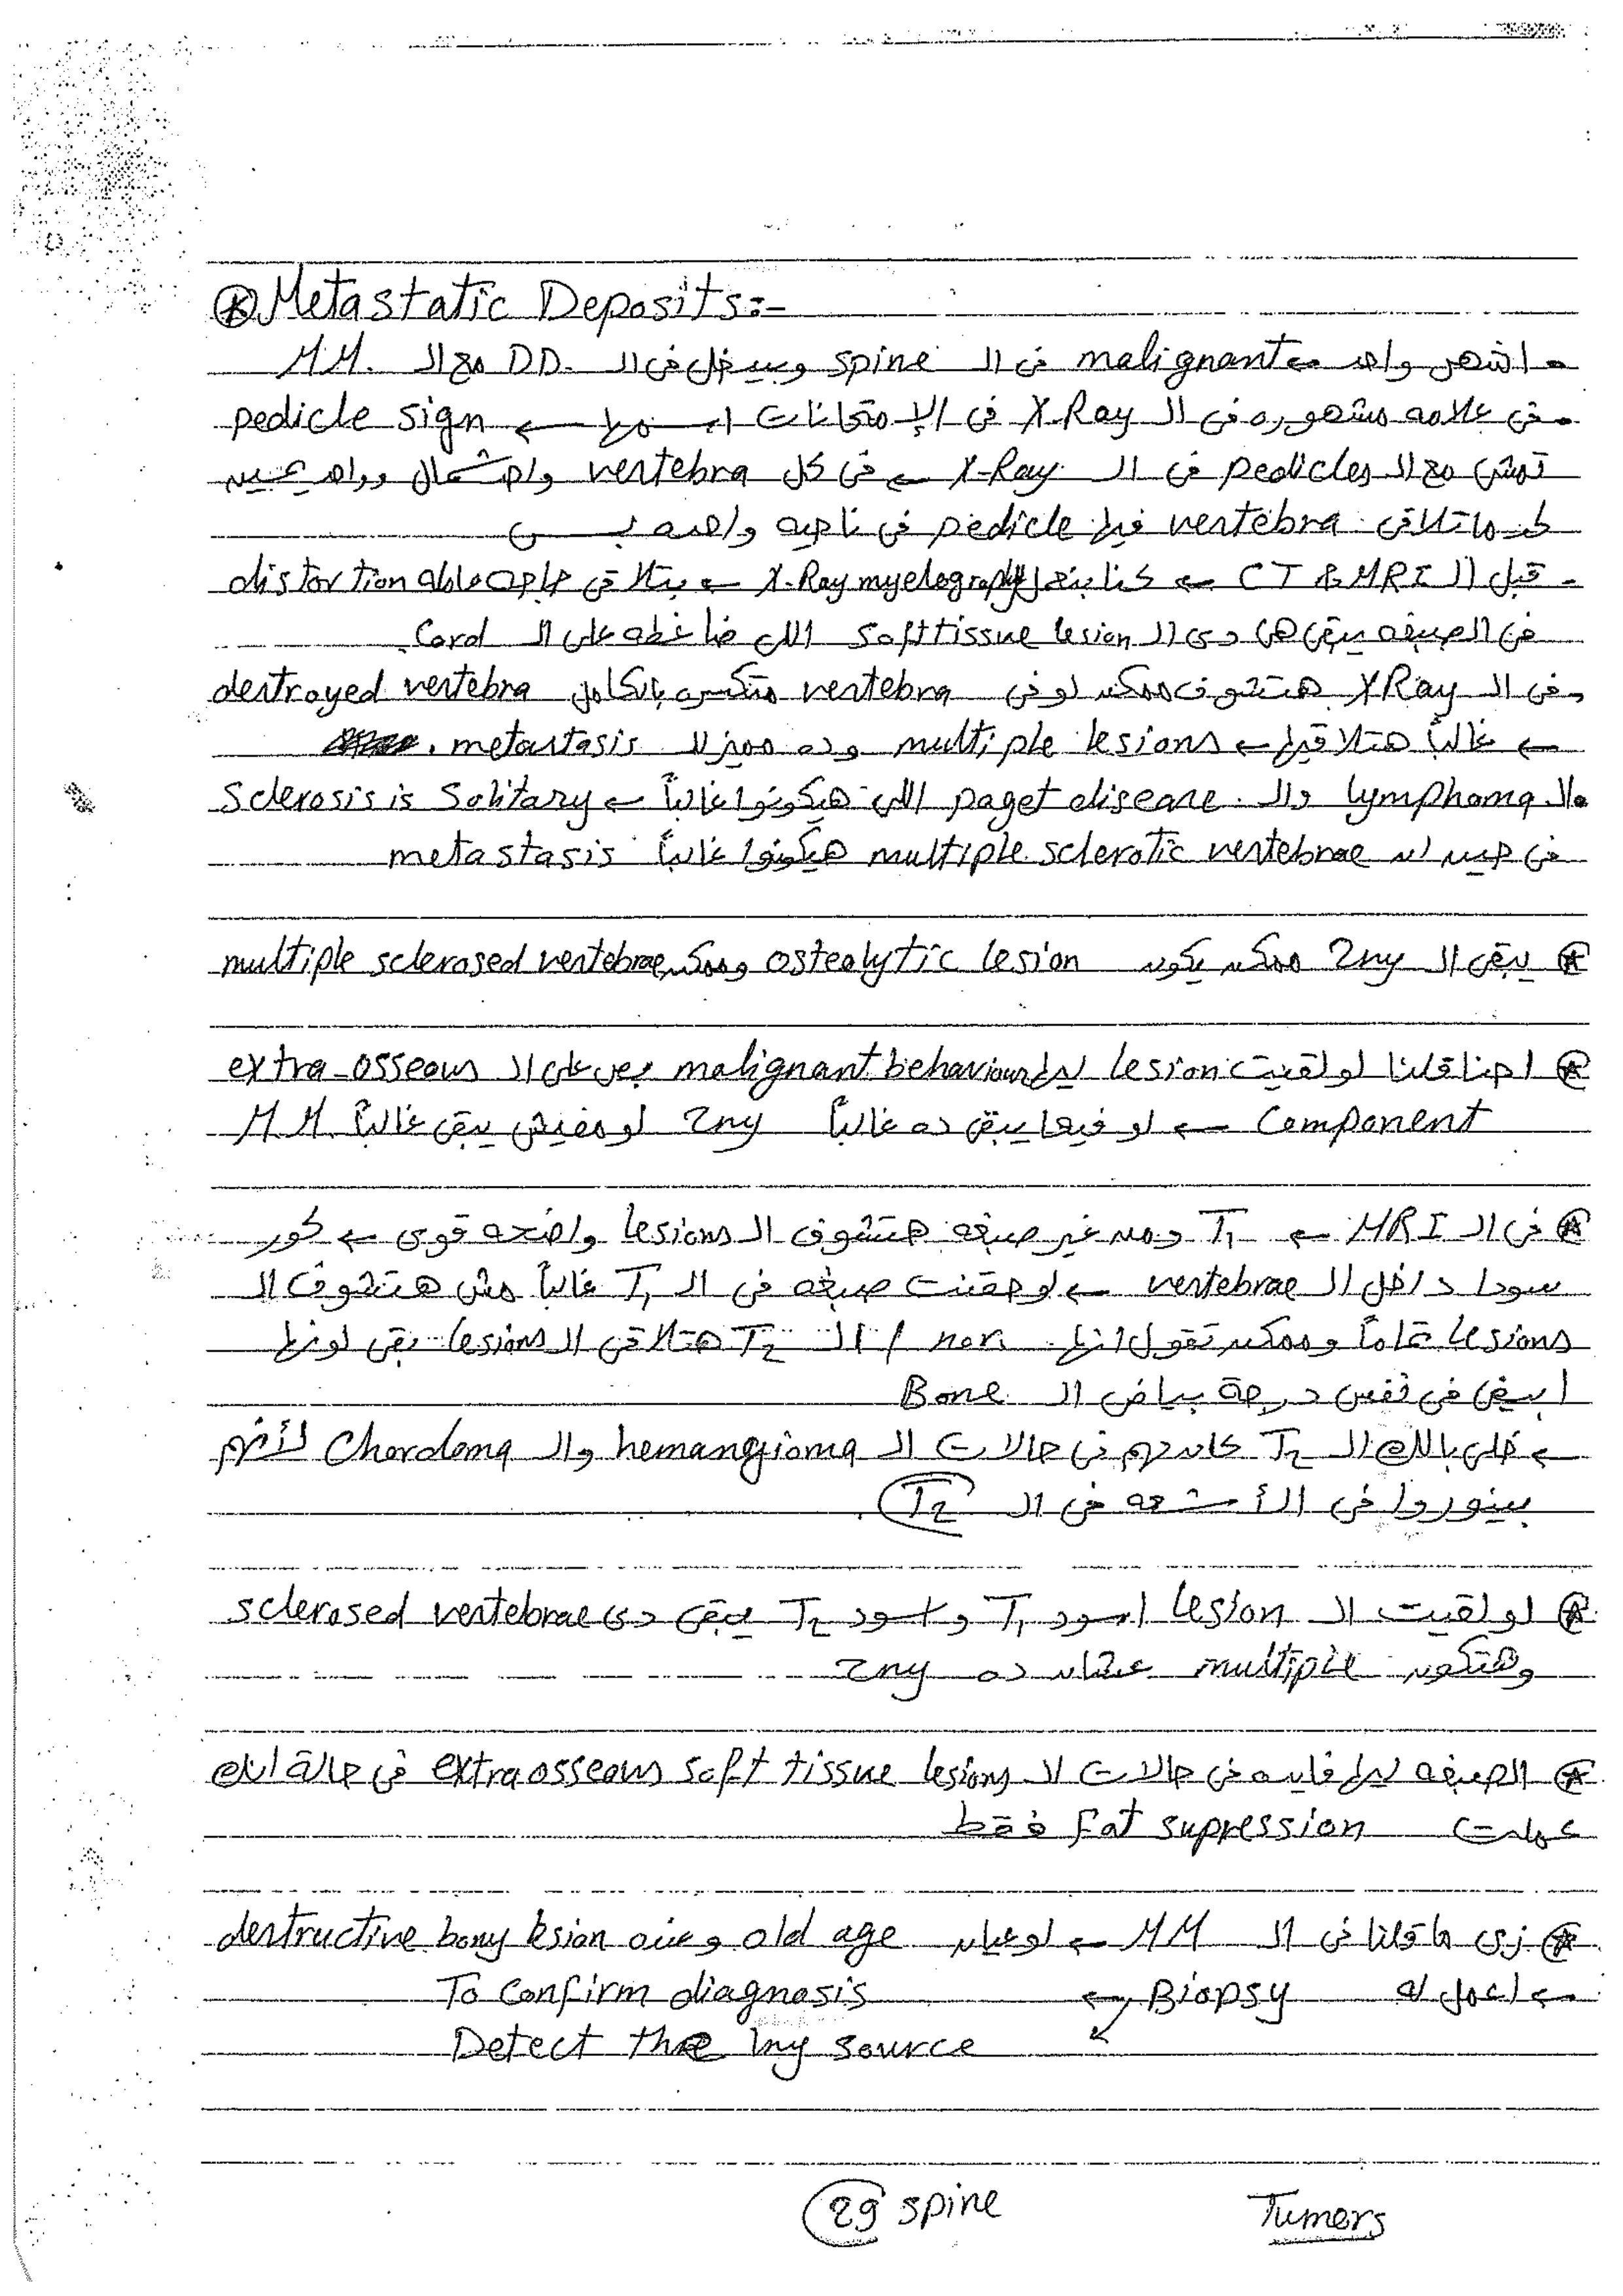 Metastatic Deposits:-
- اشهر واحد malignant ← فى الـ spine وبيدخل فى الـ DD. مع الـ M.M.
- فى علامه مشهوره فى الـ X-Ray فى الإمتحانات اسمها ← pedicle sign
تمشى مع الـ pedicles فى الـ X-Ray ← فى كل vertebra واحد شمال وواحد يمين
لحد ما تلاقى vertebra فيها pedicle فى ناحيه واحده بس
- قبل الـ CT & MRI ← كنا بنعمل X-Ray myelography ← بتلاقى حاجه عامله distortion
فى الصبغه يبقى هى دى الـ soft tissue lesion اللى ضاغطه على الـ Cord.
- فى الـ X Ray هتشوف ممكن لو فى vertebra متكسره بالكامل destroyed vertebra
← غالباً هتلاقيها ← multiple lesions وده مميز لـ metastasis.
- الـ lymphoma والـ paget disease. اللى هيكونوا غالباً ← Sclerosis is Solitary
فى حين ان multiple sclerotic vertebrae هيكونوا غالباً metastasis
يبقى الـ 2ny ممكن يكون osteolytic lesion وممكن multiple sclerosed vertebrae
احنا قلنا لو لقيت lesion ليها malignant behaviour بص على الـ extra-osseous
Component ← لو فيها يبقى ده غالباً 2ny لو مفيش يبقى غالباً M.M.
فى الـ MRI ← T1 ومن غير صبغه هتشوف الـ lesions واضحه قوى ← كور
سودا داخل الـ vertebrae ← لو حقنت صبغه فى الـ T1 غالباً مش هتشوف الـ
lesions تماماً وممكن تقول انها nor. / الـ T2 هتلاقى الـ lesions بقى لونها
ابيض فى نفس درجة بياض الـ Bone
← خلى بالك الـ T2 كان مهم فى حالات الـ hemangioma والـ Chordoma لأنهم
بينوروا فى الأشعه فى الـ T2.
لو لقيت الـ lesion اسود T1 واسود T2 يبقى دى sclerosed vertebrae
وهتكون multiple عشان ده 2ny
الصبغه ليها فايده فى حالات الـ extraosseous soft tissue lesions فى حالة انك
عملت Fat supression فقط
زى ما قلنا فى الـ MM ← لو عيان old age وعنده destructive bony lesion
← اعمل له Biopsy ← To Confirm diagnosis
Detect the 1ny source
29 spine Tumors